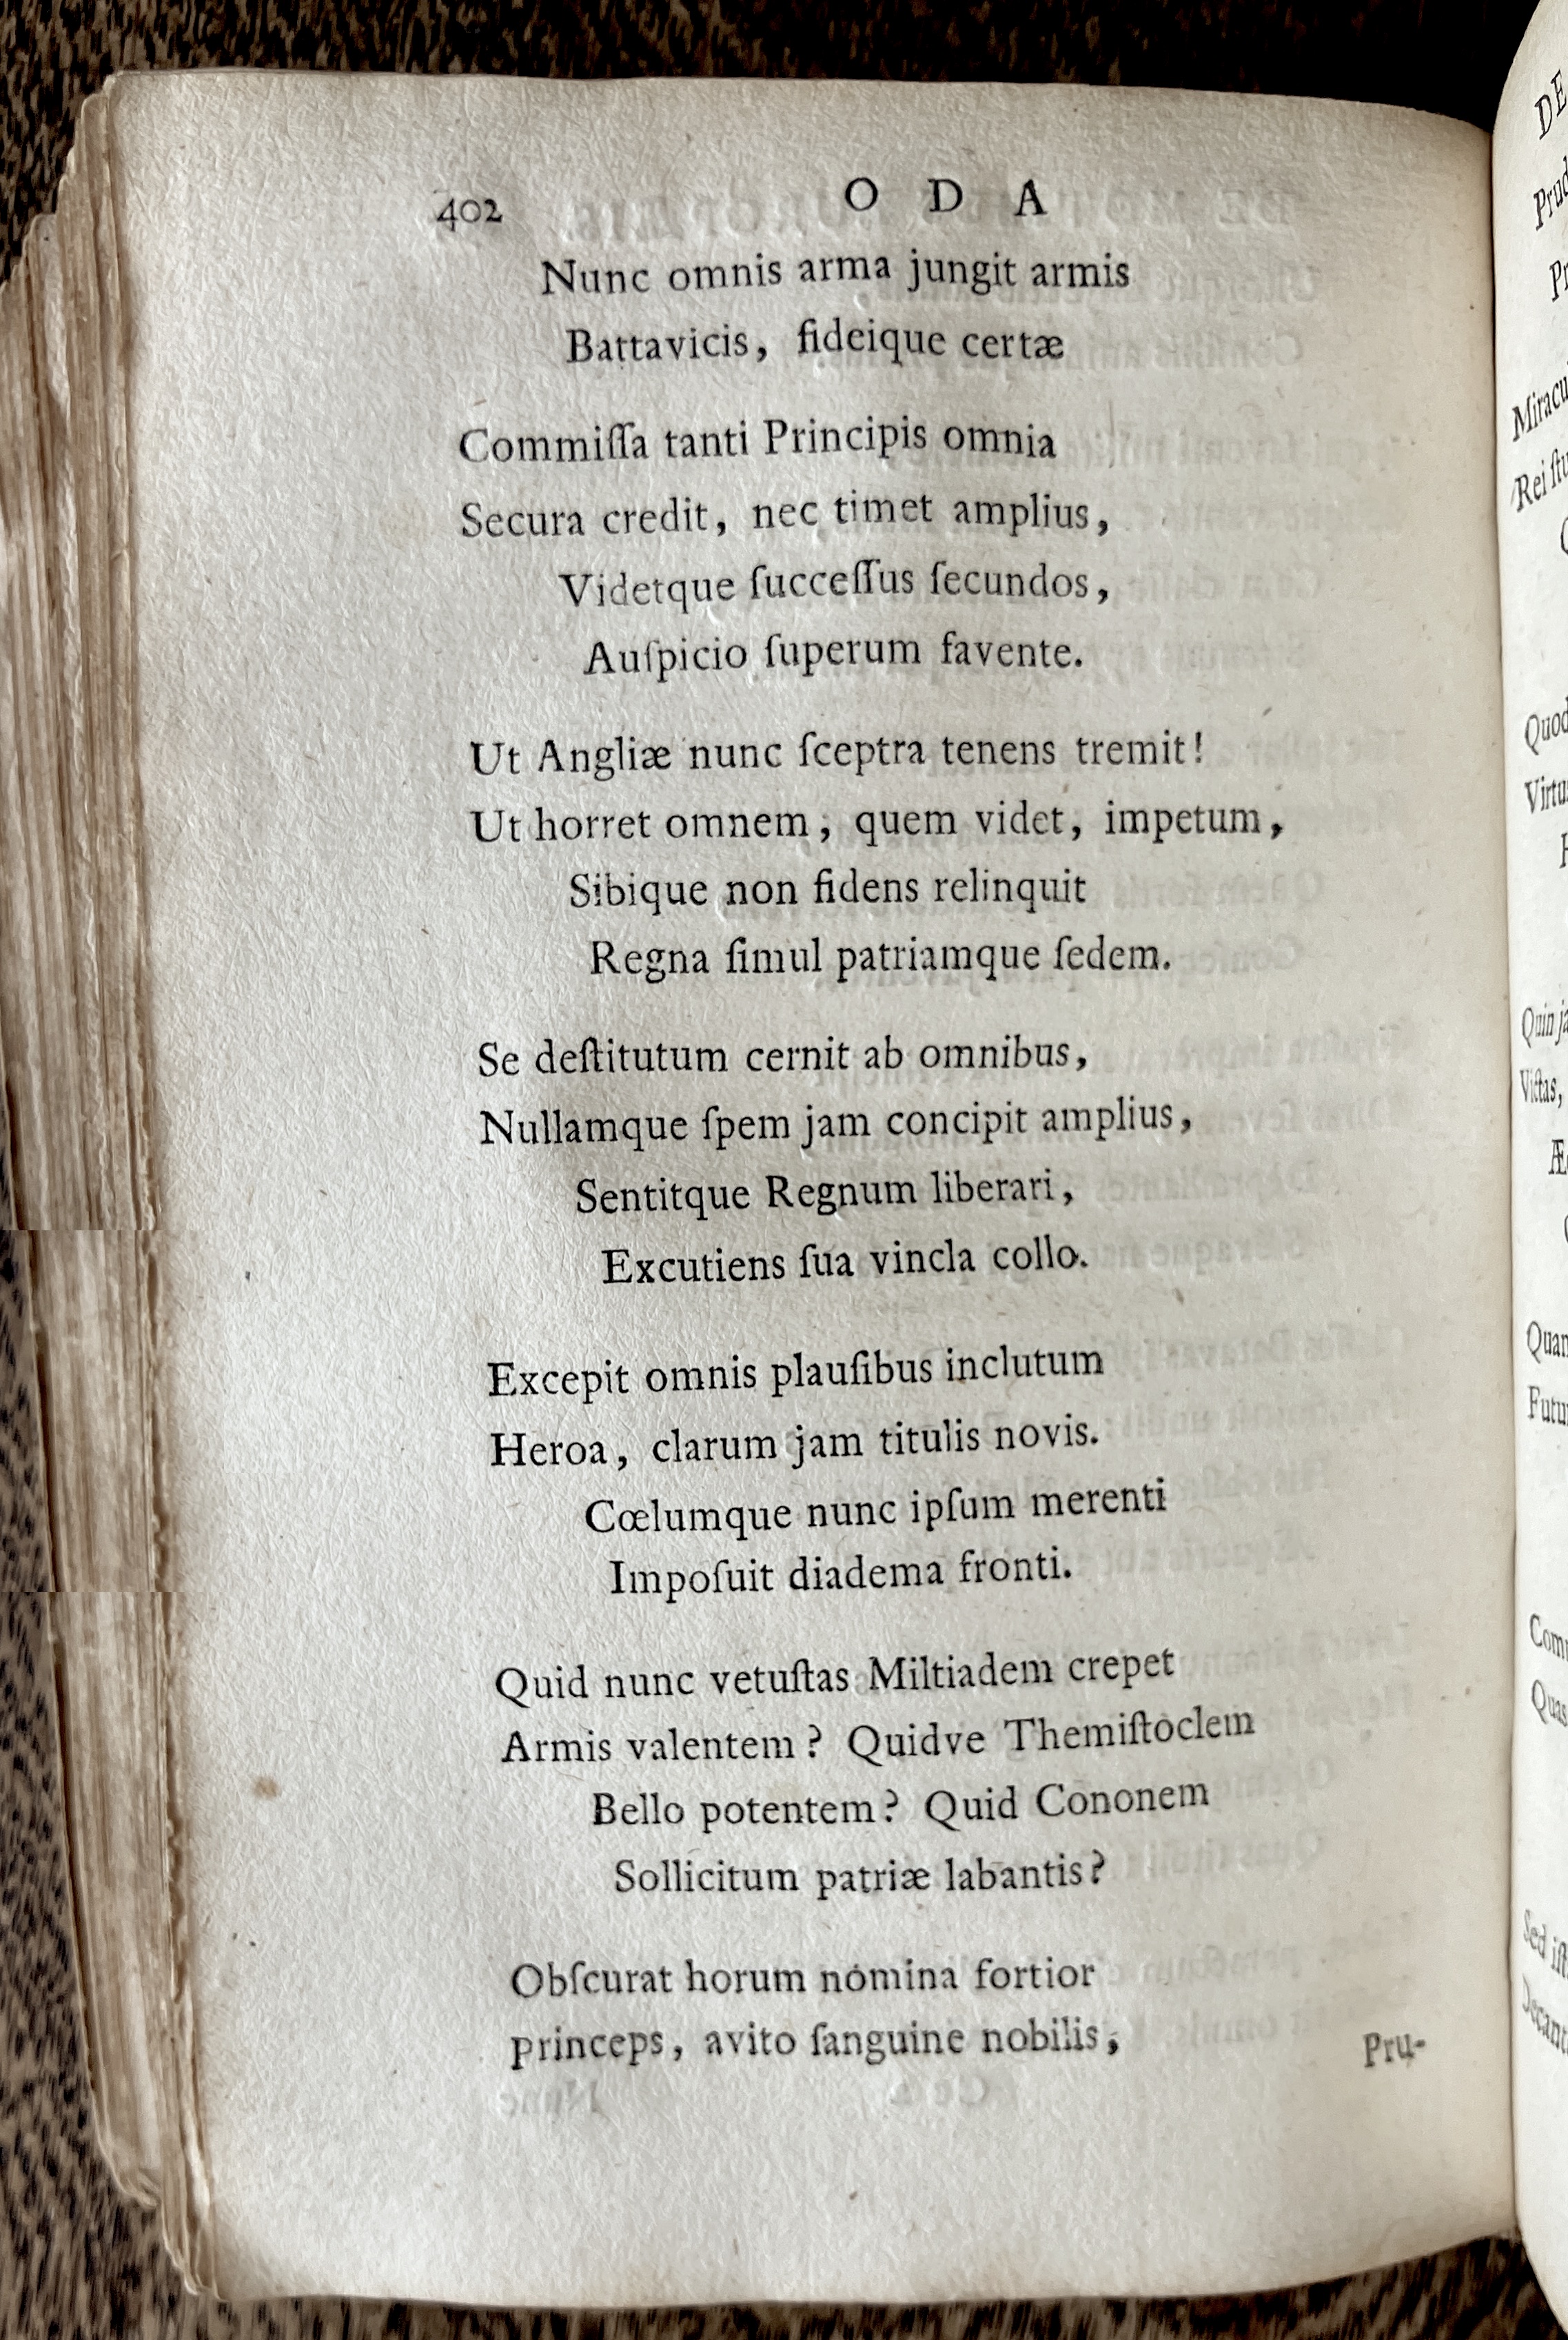 402 O D A
Nunc omnis arma jungit armis
Battavicis, fideique certæ
Commiſſa tanti Principis omnia
Secura credit, nec timet amplius,
Videtque ſucceſſus ſecundos,
Auſpicio ſuperum favente.
Ut Angliæ nunc ſceptra tenens tremit!
Ut horret omnem, quem videt, impetum,
Sibique non fidens relinquit
Regna ſimul patriamque ſedem.
Se deſtitutum cernit ab omnibus,
Nullamque ſpem jam concipit amplius,
Sentitque Regnum liberari,
Excutiens ſua vincla collo.
Excepit omnis plauſibus inclutum
Heroa, clarum jam titulis novis.
Cœlumque nunc ipſum merenti
Impoſuit diadema fronti.
Quid nunc vetuſtas Miltiadem crepet
Armis valentem? Quidve Themiſtoclem
Bello potentem? Quid Cononem
Sollicitum patriæ labantis?
Obſcurat horum nomina fortior
Princeps, avito ſanguine nobilis,
Pru-
DE
Rei
Quod
Quin
Victas,
Sed